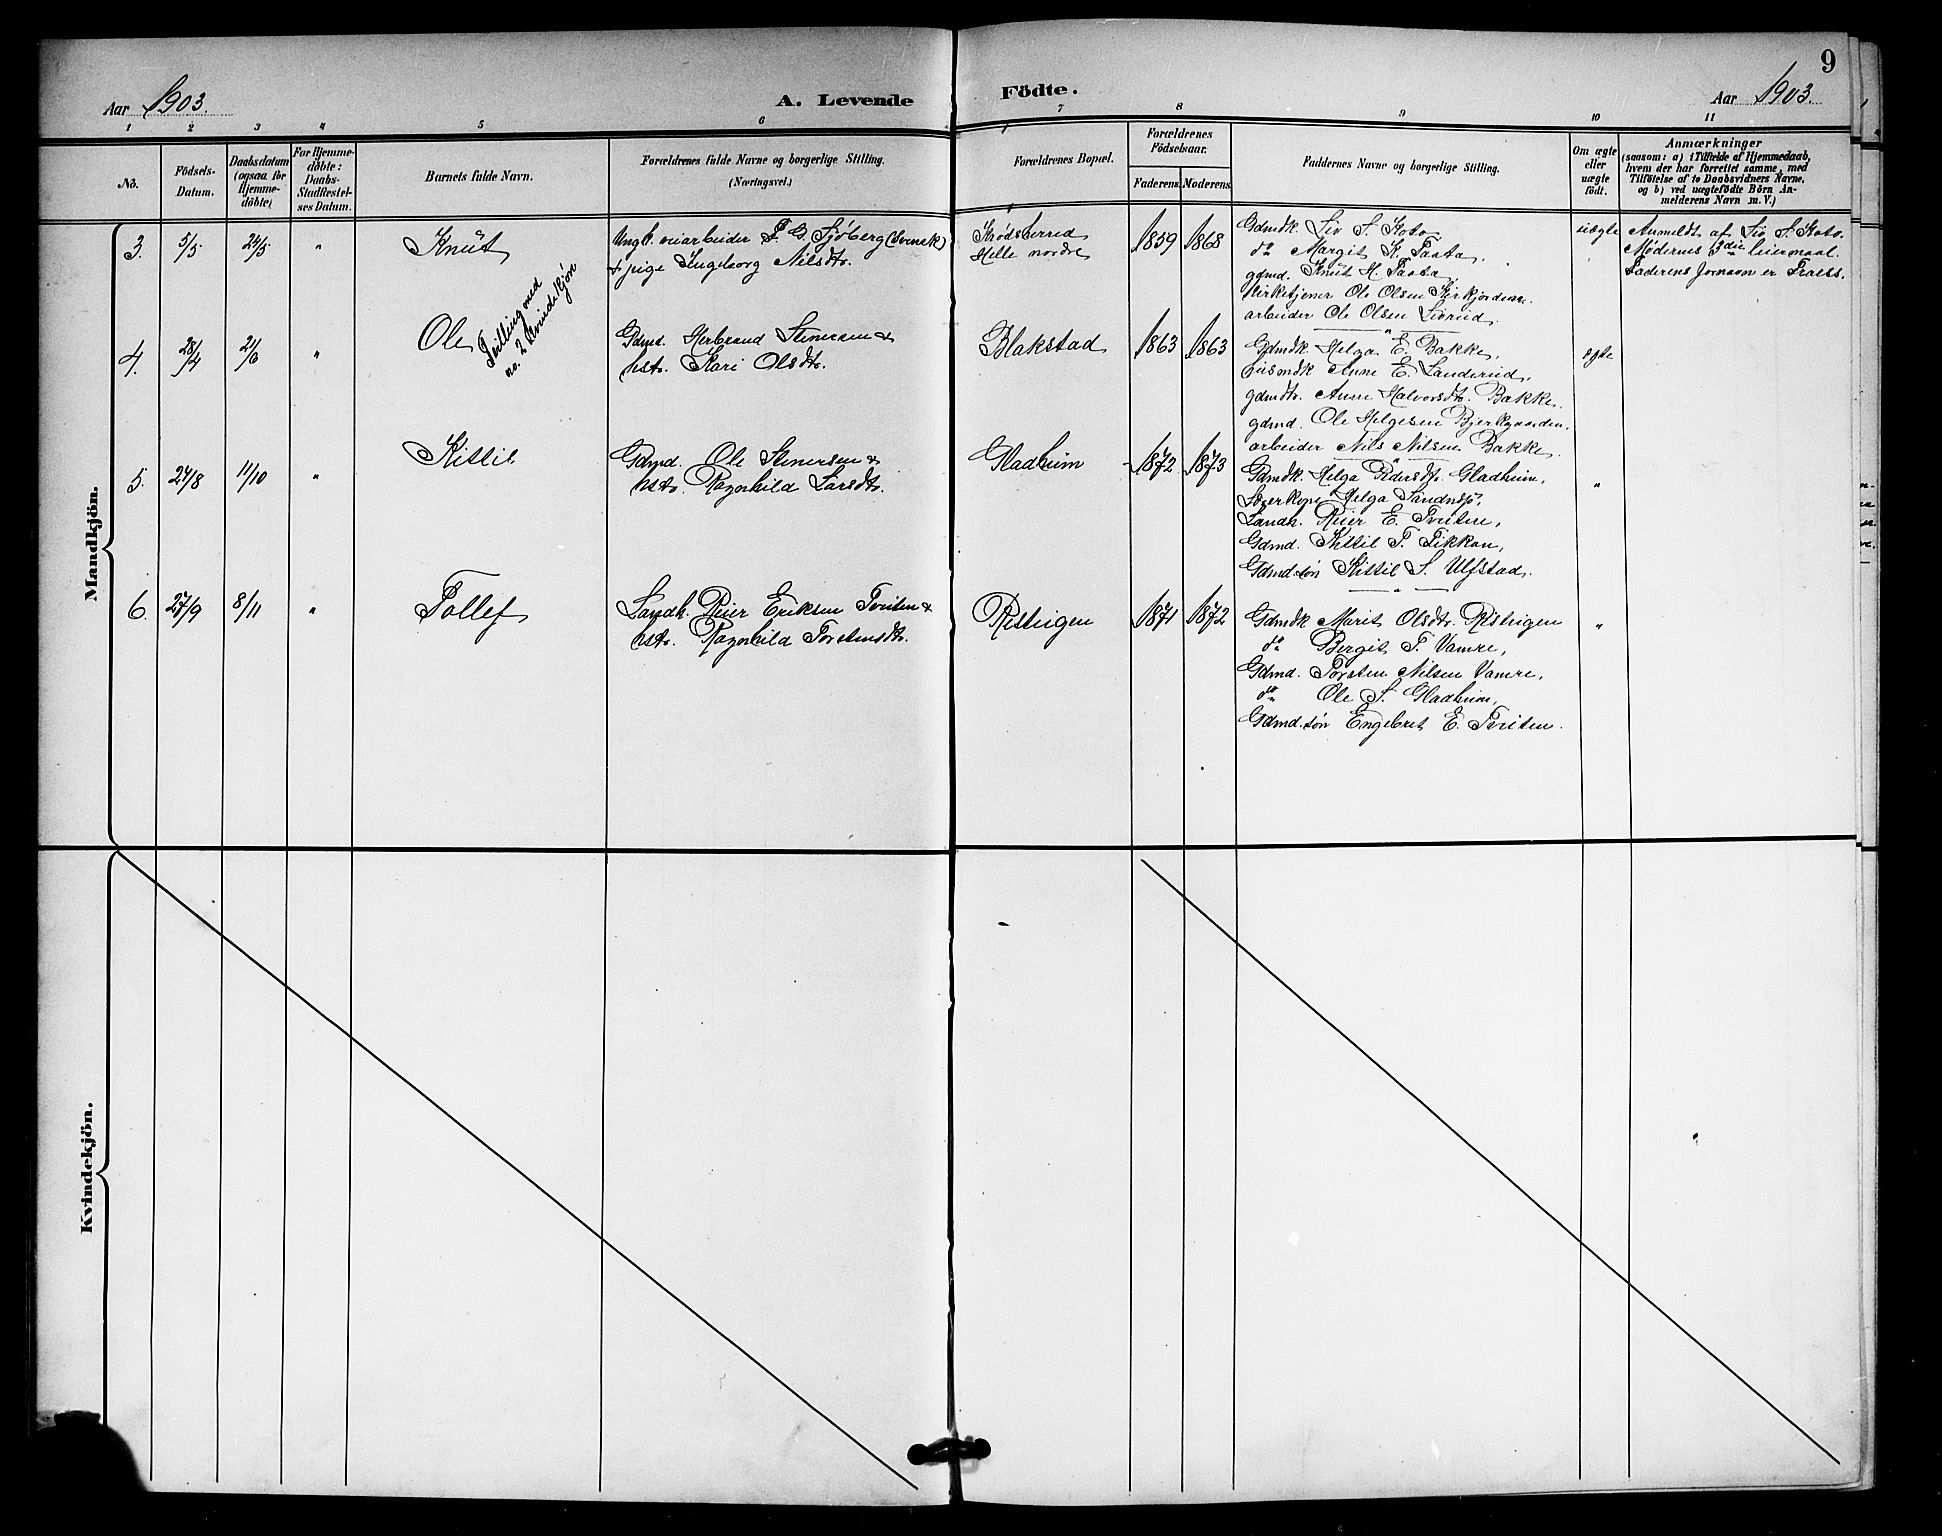 9
Aar 1903.
A. Levende Födte.
Aar 1903.
1 2 3 4 5 6 7 8 9 10 11
No.
Födsels-Datum.
Daabsdatum (ogsaa for Hjemme-döbte)
For Hjemme-döbte: Daabs-Stadfæstel-ses Datum.
Barnets fulde Navn.
Forældrenes fulde Navne og borgerlige Stilling.
(Næringsvei.)
Forældrenes Bopæl.
Forældrenes Födselsaar.
Faderens. Moderens.
Faddernes Navne og borgerlige Stilling.
Om ægte eller uægte födt.
Anmærkninger
(saasom: a) i Tilfælde af Hjemmedaab,
hvem der har forrettet samme, med
Tilföielse af to Daabsvidners Navne,
og b) ved uægtefödte Börn An-
melderens Navn m. V.)
Mandkjön.
3. 5/5 24/5 " Knut
Ungk. veiarbeider P. G. Sjöberg (svensk)
& pige Ingeborg Nilsdtr.
Krödsherred
Hille nordre
1859 1868
Gdmdk. Liv S. Kobo
do Margit K. Taata
gdmd. Knut H. Taata
kirketjener Ole Olsen
arbeider Ole Olsen Livrud.
uægte
Anmeldt af Liv S. Kobo.
Moderens 3die leiermaal.
Faderens fornavn er
4. 28/4 21/6 " Ole
Tvilling med
no. 2 kvindekjön
Gdmd. Herbrand Stenersen &
hstr. Kari Olsdtr.
Blakstad
1863 1863
Gdmdk. Helga E. Bakke,
husmdk Anne E. Sanderud,
gdmdtr. Anne Halvorsdtr. Bakke,
gdmd. Ole Helgesen Bjerkgaarden,
arbeider Nils Nilsen Bakke.
ægte
5. 24/8 11/10 " Kittil
Gdmd. Ole Stenersen &
hstr. Ragnhild Larsdtr.
Gladheim
1872 1873
Gdmdk. Helga Pedersdtr. Gladheim,
Helga
Landh. Reier E. Tveiten,
Gdmd. Kittil T. Fikkan,
Gdmd.sön Kittil S. Ulfstad.
"
6. 27/9 8/11 " Tollef
Landh. Reier Eriksen Tveiten &
hstr. Ragnhild Torstensdtr.
Risteigen
1871 1872
Gdmdk Marit Olsdtr. Risteigen
do Bergit T. Vamre,
Gdmd. Torsten Nilsen Vamre,
do Ole S. Gladheim,
Gdmd.sön Engebret E. Tveiten.
"
Kvindekjön.